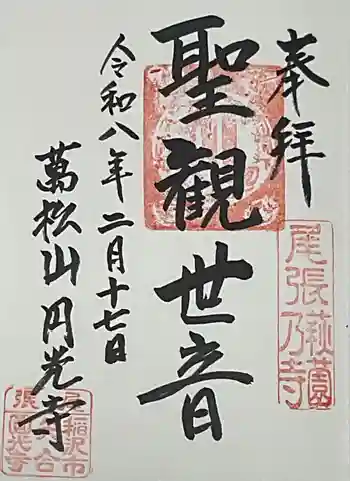 奉拝
尾張乃寺
萩園
聖観世音
令和八年二月十七日
萬松山円光寺